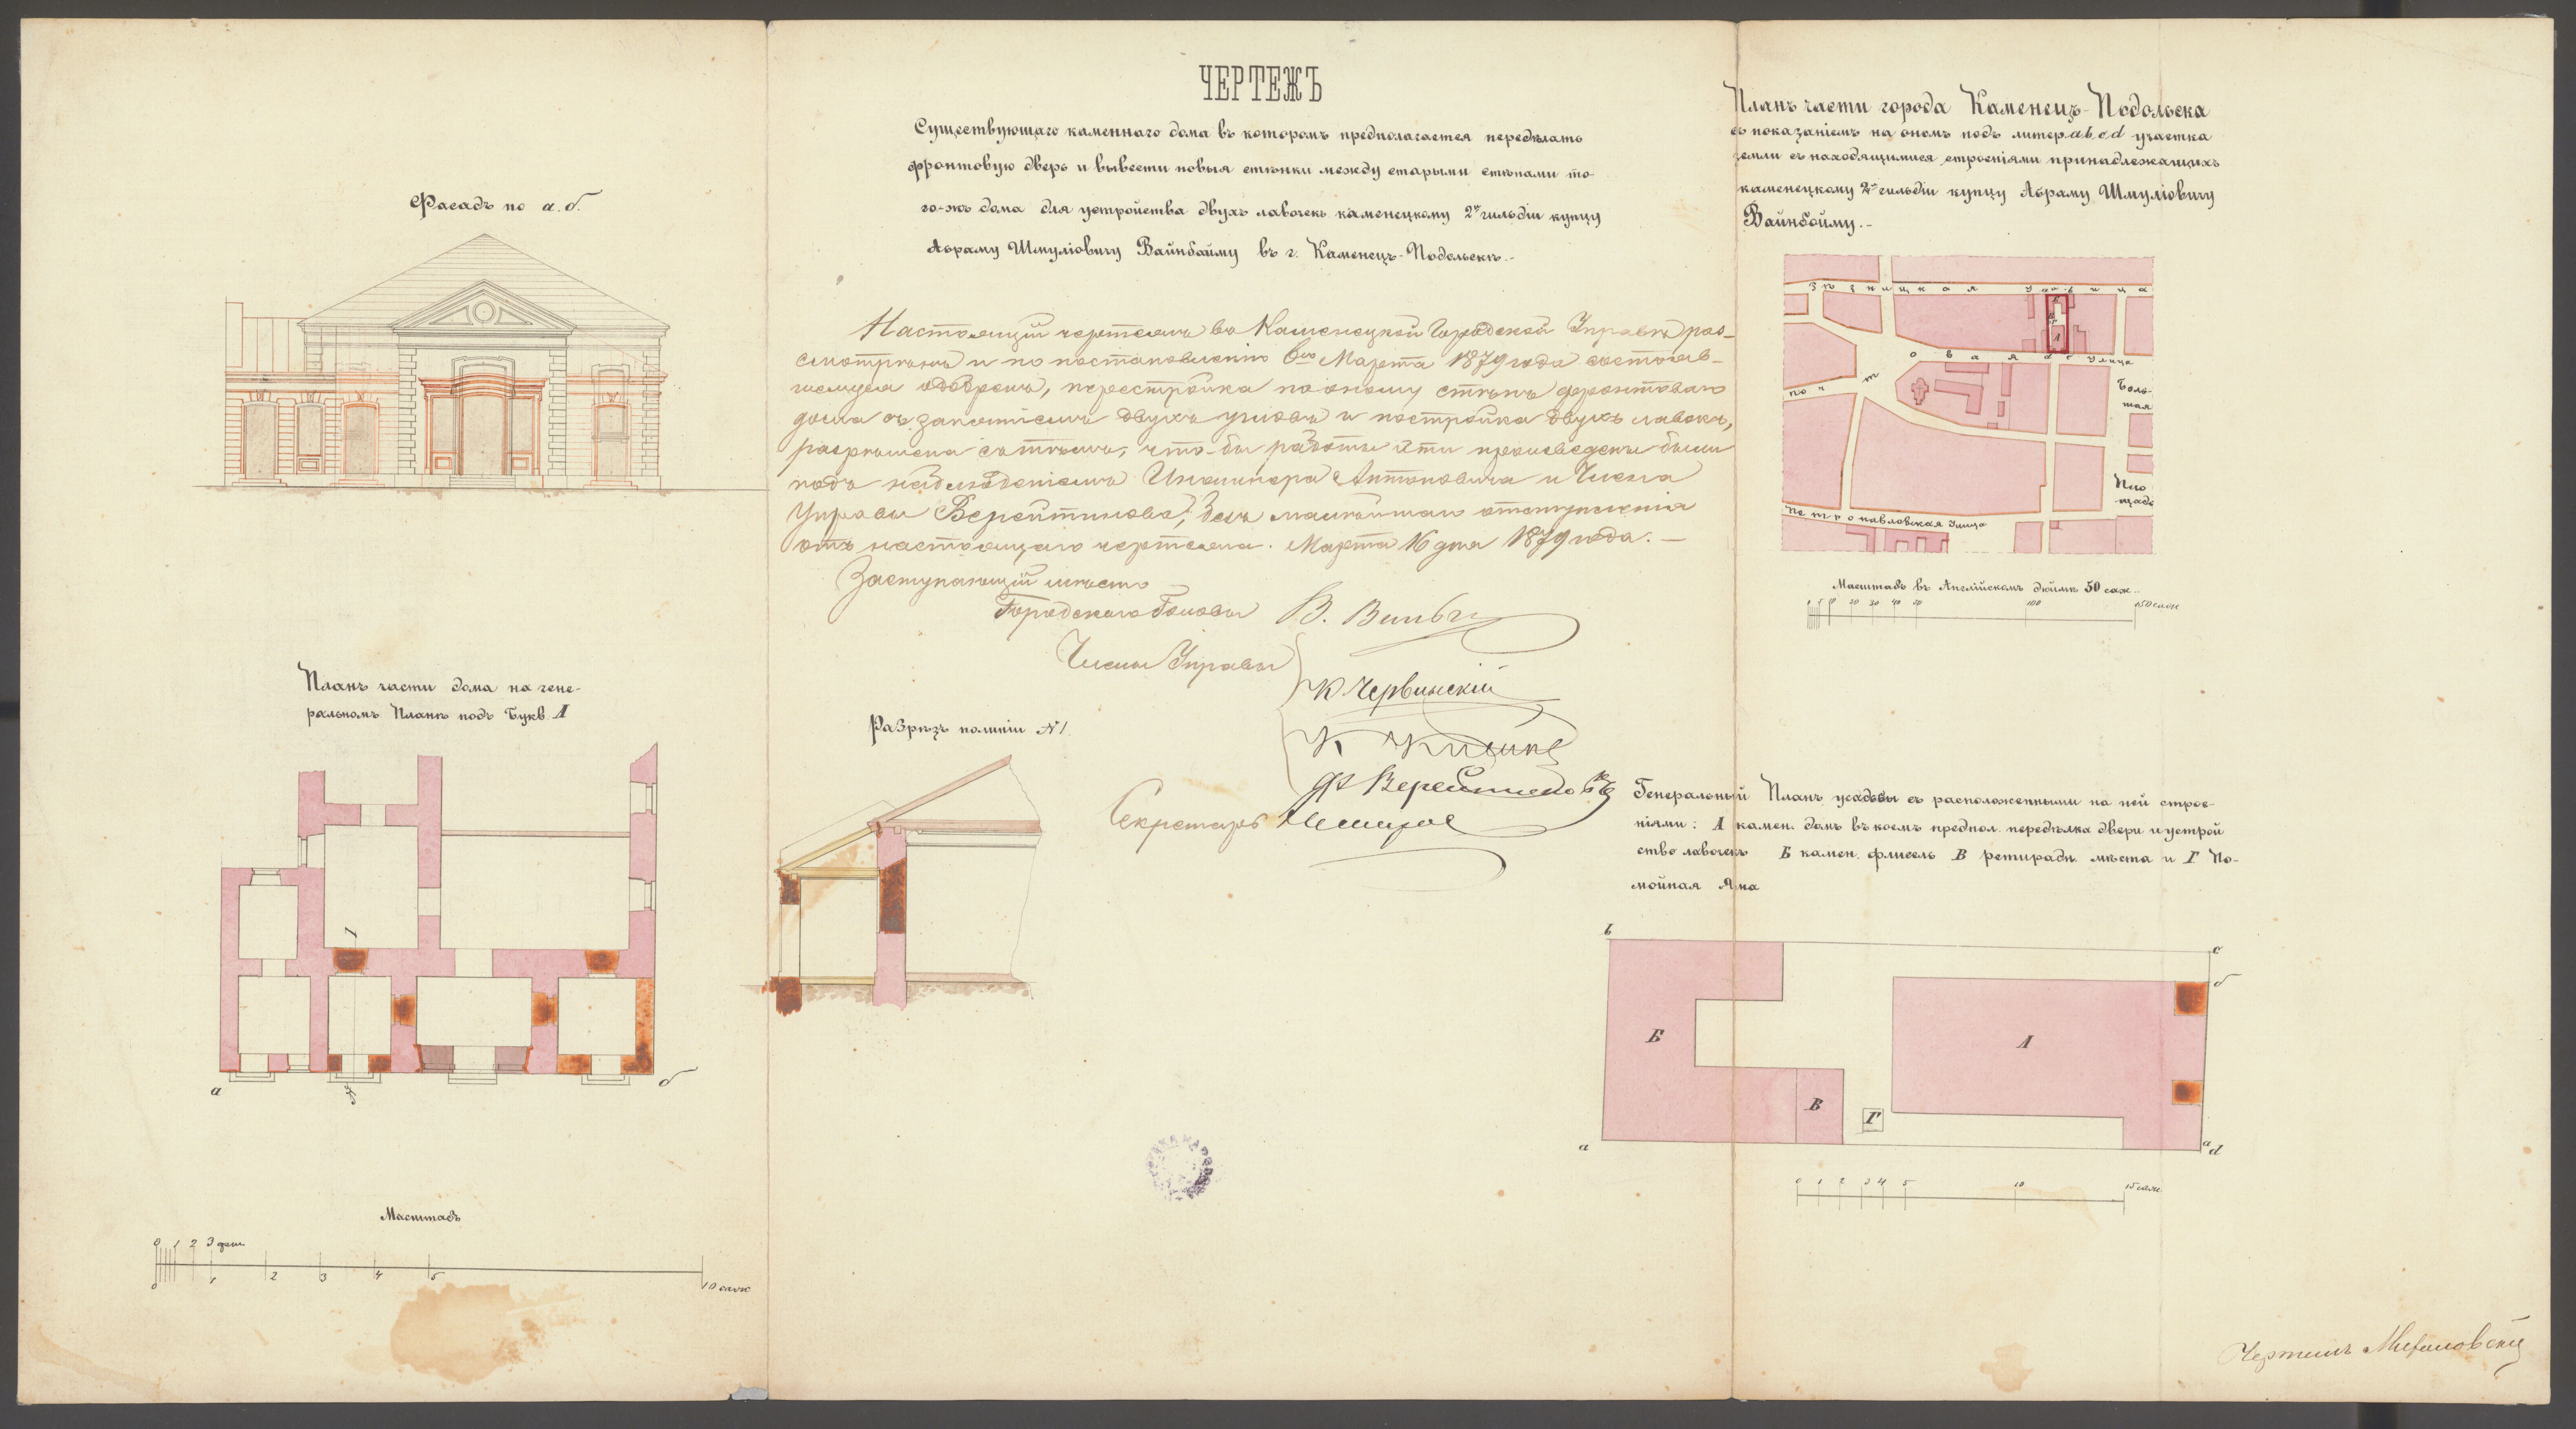 ЧЕРТЕЖЪ
Существующаго каменнаго дома въ которомъ предполагается передѣлать
фронтовую дверь и вывести новыя стѣнки между старыми стѣнами то-
го-жъ дома для устройства двухъ лавочекъ каменецкому 2й гильдіи купцу
Абраму Шмуліовичу Вайнбайму въ г. Каменецъ-Подольскѣ.-
Фасадъ по а.б.
Настоящій чертежъ въ Каменецкой Городской Управѣ раз-
смотрѣнъ и по постановленію 6го Марта 1879 года состояв-
шемуся одобренъ, перестройка по оному стѣнъ фронтоваго
дома съ занятіемъ двухъ угловъ и постройка двухъ лавокъ,
разрѣшена съ тѣмъ, что-бы работы эти произведены были
подъ наблюденіемъ Инженера Антоновича и Члена
Управы Верейтинова, безъ малѣйшаго отступленія
отъ настоящаго чертежа. Марта 16 дня 1879 года. —
Заступающій мѣсто
Городскаго Головы В.
Члены Управы
К Червинскій
К
Секретарь
Планъ части города Каменецъ-Подольска
съ показаніемъ на ономъ подъ литер. a b c d участка
земли съ находящимися строеніями принадлежащихъ
каменецкому 2й гильдіи купцу Абраму Шмуліовичу
Вайнбайму.-
Рѣзницкая улица
Б
А
Почтовая улица
Боль-
шая
Пло
щадь
Петропавловская Улица
Масштабъ въ Англійскомъ дюймѣ 50 саж.
0 5 10 20 30 40 50 100 150 саж
Планъ части дома на гене-
ральномъ Планѣ подъ Букв. А
1
а б
Масштабъ
0 1 2 3 фут.
0 1 2 3 4 5 10 саж
Разрѣзъ по линіи №1.
Генеральный Планъ усадьбы съ расположенными на ней строе-
ніями: А камен. домъ въ коемъ предпол. передѣлка двери и устрой
ство лавочекъ Б камен. флигель В ретирадн. мѣста и Г По-
мойная Яма
b c
б
Б А
В Г
a а d
0 1 2 3 4 5 10 15 саж.
Чертилъ